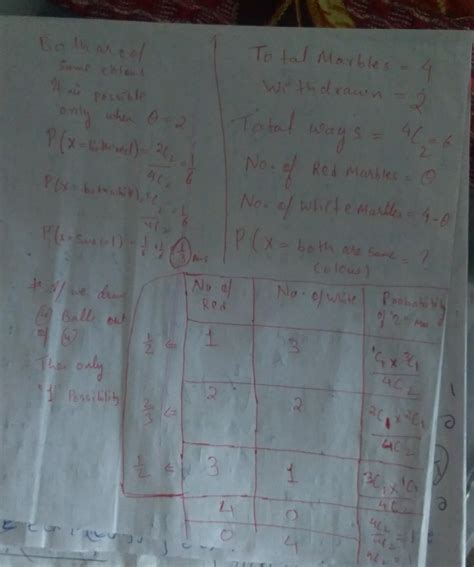 Both are of
same colour
It is possible
only when θ = 2
P(x = both red) = 2C2/4C2 = 1/6
P(x = both white) = 2C2/4C2 = 1/6
P(x = same col) = 1/6 + 1/6 = 1/3 Ans
* If we draw
4 Balls out
of 4
Then only
"1" Possibility
Total Marbles = 4
Withdrawn = 2
Total ways = 4C2 = 6
No. of Red Marbles = θ
No. of White Marbles = 4-θ
P(X = both are same = ?
colour)
No. of Red No. of White Probability of "2"
1/2 ⇐ 1 3 1C1 x 3C1/4C2
2/3 ⇐ 2 2 2C1 x 2C1/4C2
1/2 ⇐ 3 1 3C1 x 1C1/4C2
4 0 4C2/4C2 = 1
0 4 4C2